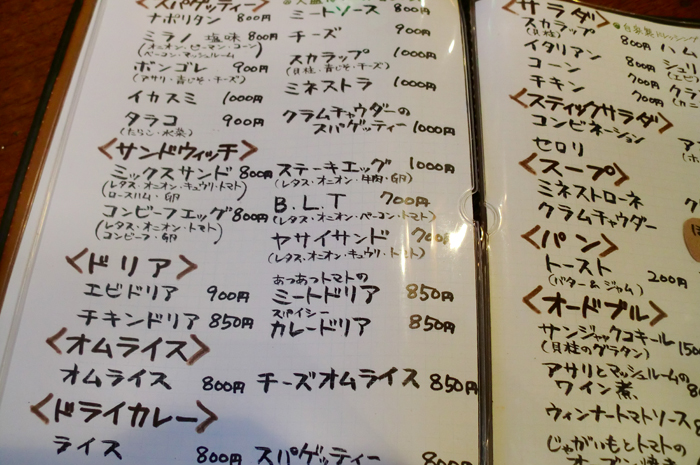 <スパゲッティー>
ナポリタン 800円
ミラノ 塩味 800円
(オニオン・ピーマン・コーン)
(ベーコン・マッシュルーム)
ボンゴレ 900円
(アサリ・青じそ・チーズ)
イカスミ 1000円
タラコ 900円
(たらこ・水菜)
ミートソース 800円
チーズ 900円
スカラップ 1000円
(貝柱・青じそ・チーズ)
ミネストラ 1000円
クラムチャウダーの
スパゲッティー 1000円
<サンドウィッチ>
ミックスサンド 800円
(レタス・オニオン・キュウリ・トマト)
ロースハム・卵)
コンビーフエッグ 800円
(レタス・オニオン・トマト)
コンビーフ・卵)
ステーキエッグ 1000円
(レタス・オニオン・牛肉・卵)
B.L.T 700円
(レタス・オニオン・ベーコン・トマト)
ヤサイサンド 700円
(レタス・オニオン・キュウリ・トマト)
<ドリア>
エビドリア 900円
チキンドリア 850円
あつあつトマトの
ミートドリア 850円
スパイシー
カレードリア 850円
<オムライス>
オムライス 800円 チーズオムライス 850円
<ドライカレー>
ライス 800円 スパゲッティー 800円
<サラダ>
スカラップ 800円
(貝柱)
イタリアン 800円
コーン 700円
チキン 700円
ハム
<スティックサラダ>
コンビネーション
セロリ
<スープ>
ミネストローネ
クラムチャウダー
<パン>
トースト 200円
(バター&ジャム)
<オードブル>
サンジャックコキール
(貝柱のグラタン)
アサリとマッシュルームの
ワイン煮
ウィンナートマトソース
じゃがいもとトマトの
オーブン焼き